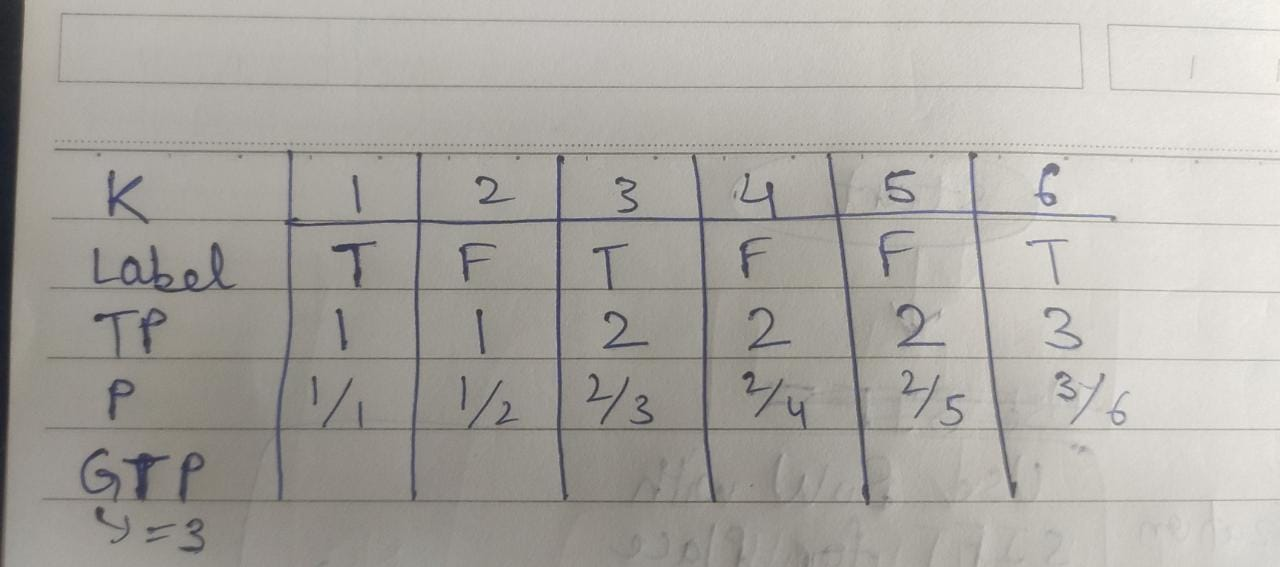 K 1 2 3 4 5 6
Label T F T F F T
TP 1 1 2 2 2 3
P 1/1 1/2 2/3 2/4 2/5 3/6
GTP
↳ = 3